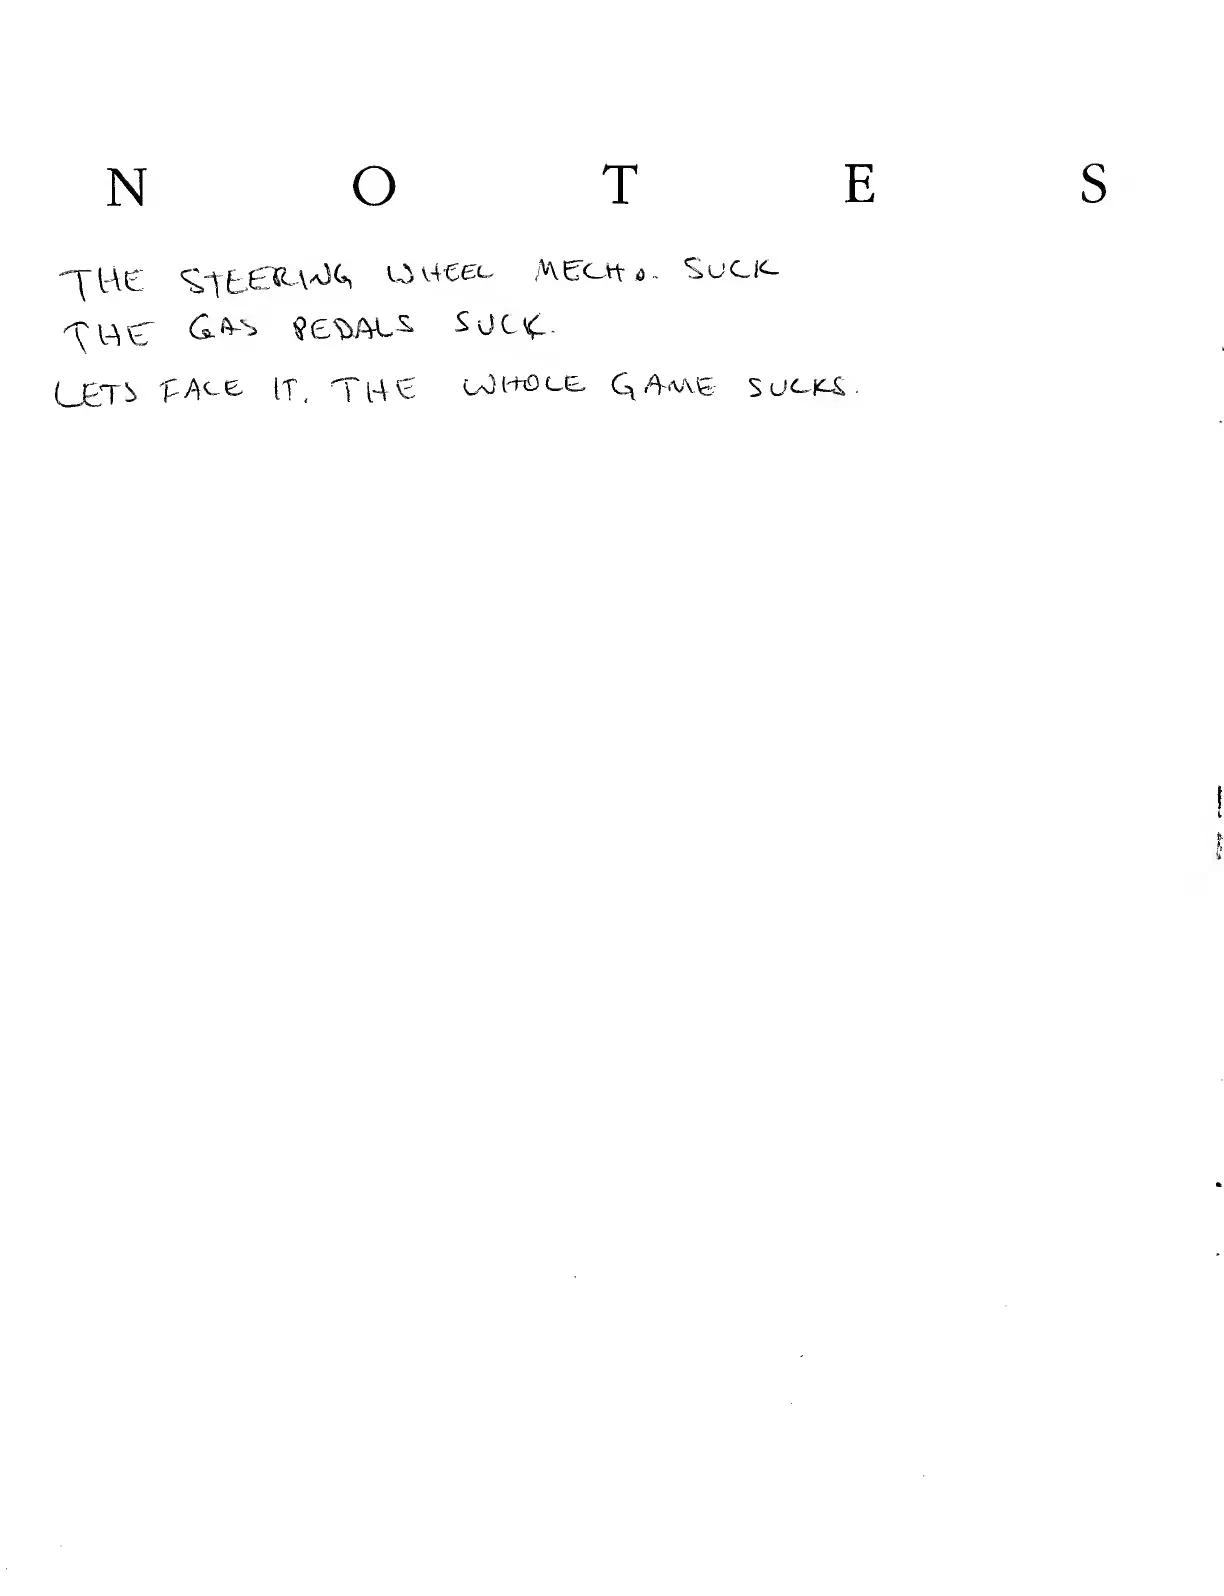 N O T E S
THE STEERING WHEEL MECH. SUCK
THE GAS PEDALS SUCK.
LETS FACE IT. THE WHOLE GAME SUCKS.